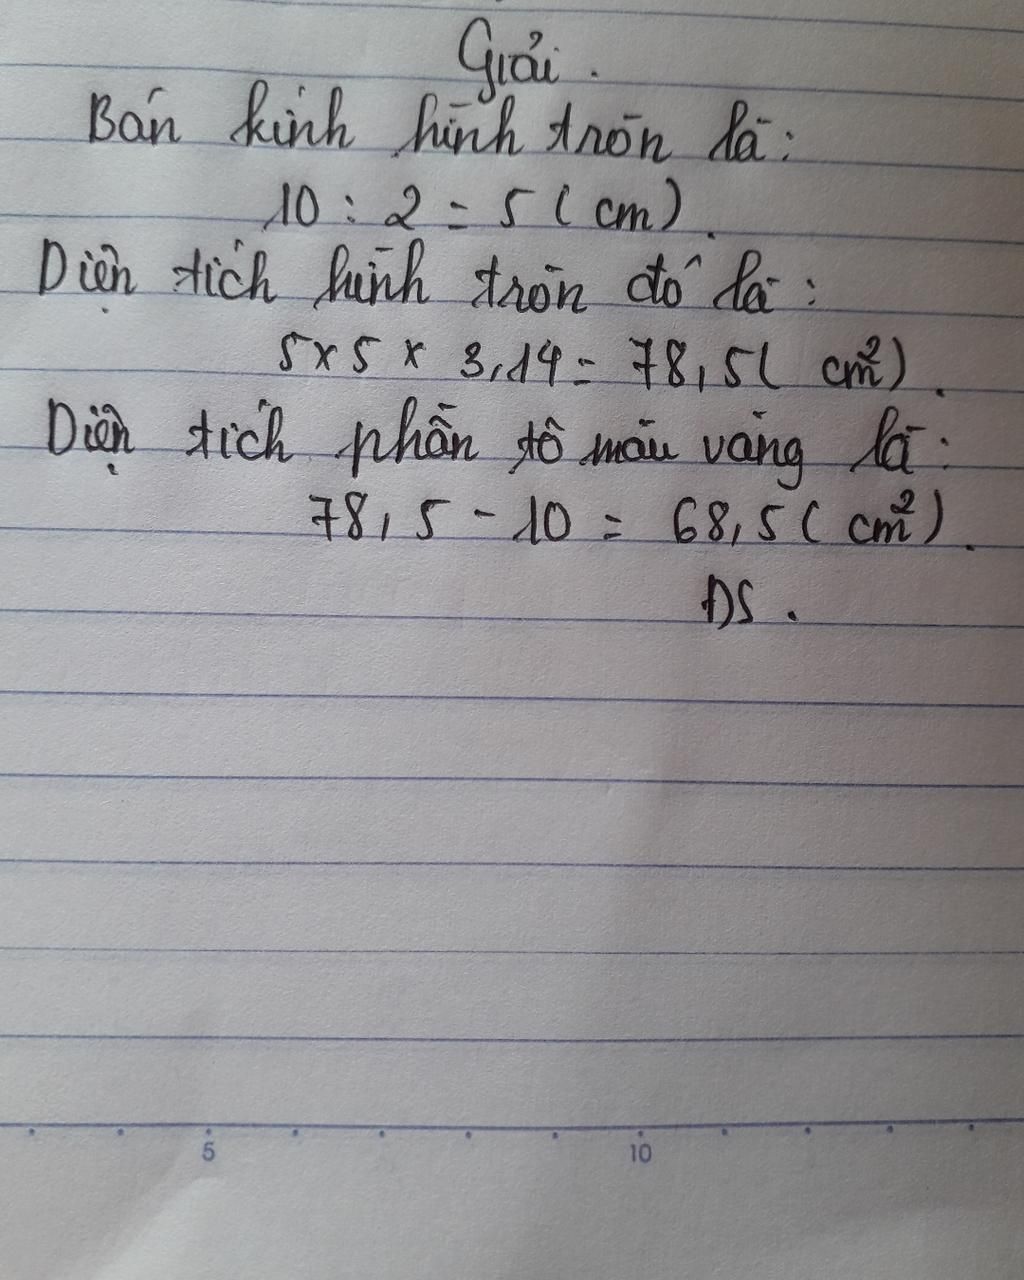 Giải.
Bán kính hình tròn là:
10 : 2 = 5 ( cm ).
Diện tích hình tròn đó là :
5 x 5 x 3,14 = 78,5 ( cm²).
Diện tích phần tô màu vàng là :
78,5 - 10 = 68,5 ( cm²).
ĐS.
5 10